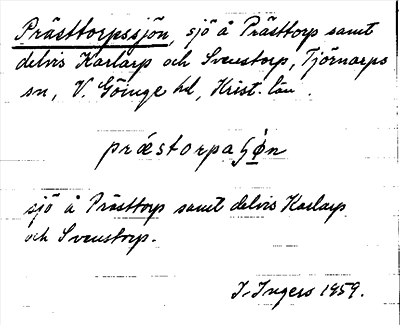 Prästtorpssjön, sjö å Prästtorp samt
delvis Karlarp och Svenstorp, Tjörnarps
sn, V. Göinge hd, Krist. län.
præstorpaʃǿn
sjö å Prästtorp samt delvis Karlarp
och Svenstorp.
I. Ingers 1959.